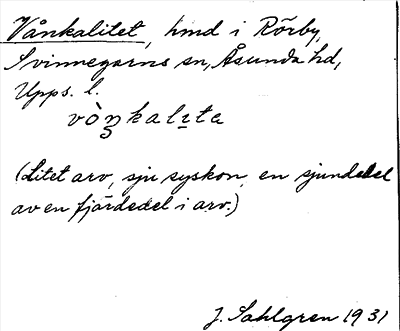 Vånkalitet, hmd i Rörby,
Svinnegarns sn, Åsunda hd,
Upps. l.
vòŋkalıta
(Litet arv, sju syskon, en sjundedel
av en fjärdedel i arv.)
J. Sahlgren 1931